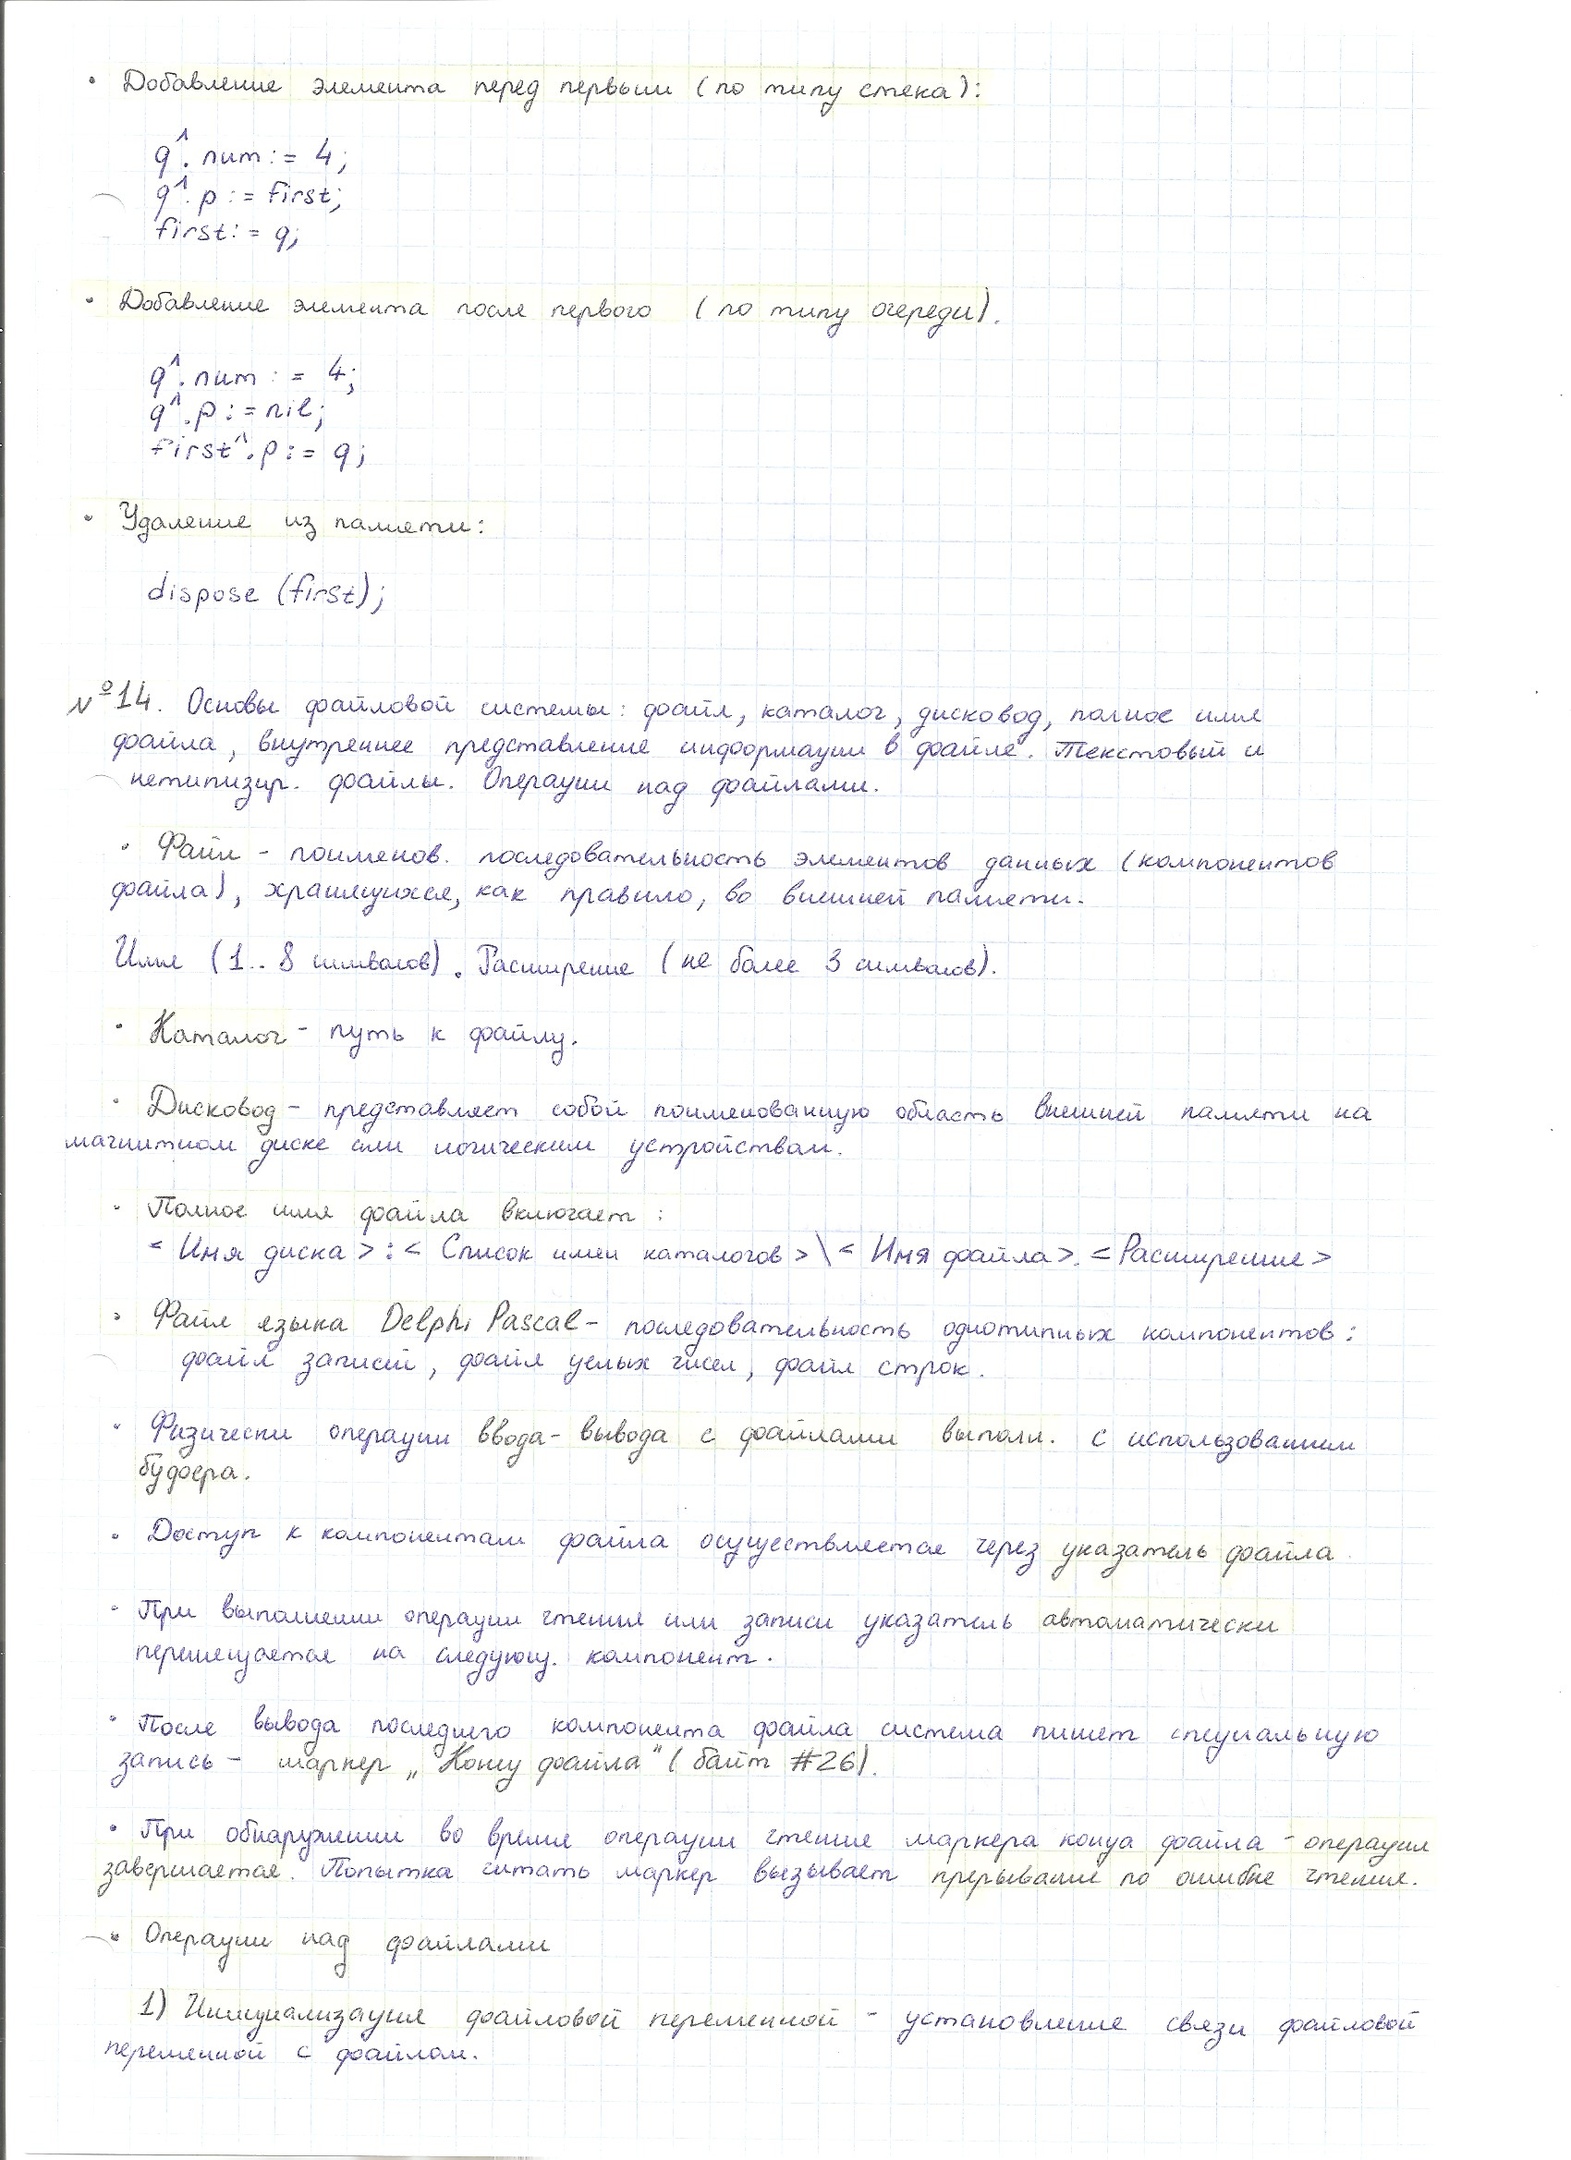 • Добавление элемента перед первым (по типу стека):
q^. num := 4;
q^. p := first;
first := q;
• Добавление элемента после первого (по типу очереди).
q^. num := 4;
q^. p := nil;
first^. p := q;
• Удаление из памяти:
dispose (first);
№14. Основы файловой системы: файл, каталог, дисковод, полное имя
файла, внутреннее представление информации в файле. Текстовый и
нетипизир. файлы. Операции над файлами.
• Файл - поименов. последовательность элементов данных (компонентов
файла), хранящихся, как правило, во внешней памяти.
Имя (1.. 8 символов). Расширение (не более 3 символов).
• Каталог - путь к файлу.
• Дисковод - представляет собой поименованную область внешней памяти на
магнитном диске или логическим устройствам.
• Полное имя файла включает:
< Имя диска > : < Список имен каталогов > \ < Имя файла >. < Расширение >
• Файл языка Delphi Pascal - последовательность однотипных компонентов:
файл записей, файл целых чисел, файл строк.
• Физически операции ввода-вывода с файлами выполн. с использованием
буфера.
• Доступ к компонентам файла осуществляется через указатель файла
• При выполнении операции чтения или записи указатель автоматически
перемещается на следующ. компонент.
• После вывода последнего компонента файла система пишет специальную
запись - маркер „Конец файла" (байт #26).
• При обнаружении во время операции чтение маркера конца файла - операция
завершается. Попытка читать маркер вызывает прерывание по ошибке чтения.
• Операции над файлами
1) Инициализация файловой переменной - установление связи файловой
переменной с файлом.